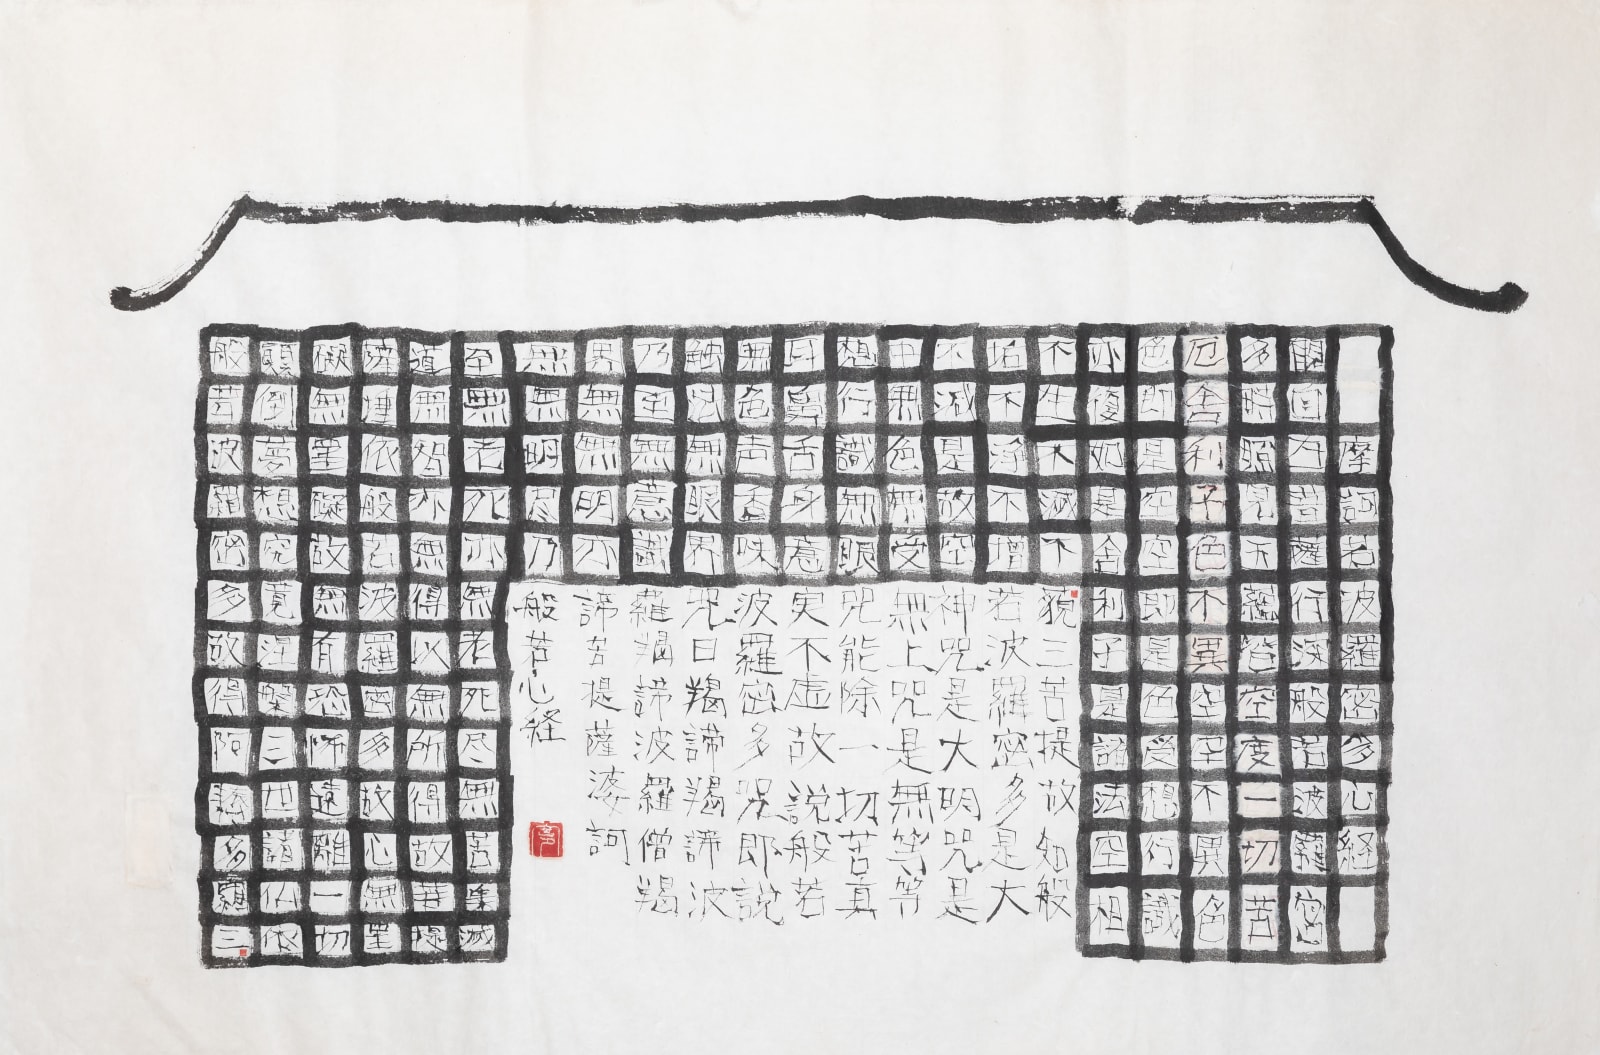 摩訶若波羅密多心経
観自在菩薩行深般若波羅密
多時照見五蘊皆空度一切苦
厄舎利子色不異空空不異色
色即是空空即是色受想行識
亦復如是舎利子是諸法空相
不生不滅不
垢不浄不増
不減是故空
中無色無受
想行識無眼
耳鼻舌身意
無色声香味
触法無眼界
乃至無意識
界無無明亦
無無明尽乃
至無老死亦無老死尽無苦集滅
道無智亦無得以無所得故菩提
薩埵依般若波羅密多故心無罣
礙無罣礙故無有恐怖遠離一切
顛倒夢想究竟涅槃三世諸仏依
般若波羅密多故得阿耨多羅三
藐三菩提故知般
若波羅密多是大
神咒是大明咒是
無上咒是無等等
咒能除一切苦真
実不虚故説般若
波羅密多咒即説
咒曰羯諦羯諦波
羅羯諦波羅僧羯
諦菩提薩婆訶
般若心経